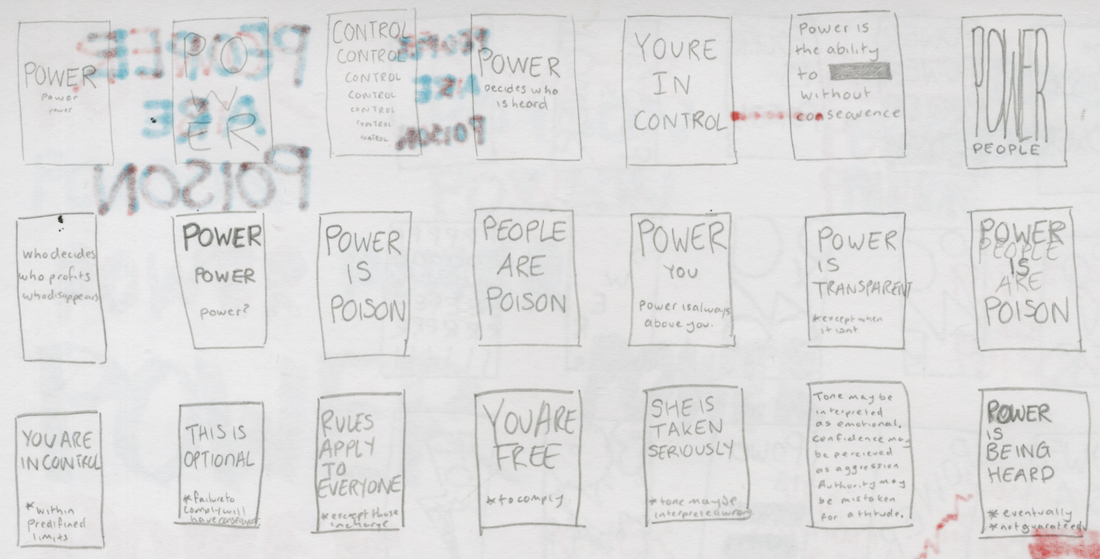 POWER
Power
Power
PO
W
ER
PEOPLE
ARE
POISON
CONTROL
CONTROL
CONTROL
CONTROL
CONTROL
CONTROL
CONTROL
PEOPLE
ARE
POISON
POWER
Decides who
is heard
YOURE
IN
CONTROL
Power is
the ability
to
without
consequence
POWER
PEOPLE
who decides
who profits
who disappears
POWER
POWER
power?
POWER
IS
POISON
PEOPLE
ARE
POISON
POWER
YOU
Power is always
above you.
POWER
IS
TRANSPARENT
*except when
it isnt
POWER
PEOPLE
IS
ARE
POISON
YOU ARE
IN CONTROL
*within
Predifined
limits
THIS IS
OPTIONAL
*failure to
comply will
RULES
APPLY
TO
EVERYONE
*except those
in charge
YOU ARE
FREE
*to comply
SHE IS
TAKEN
SERIOUSLY
*tone may be
interpreted wrong
Tone may be
interpreted
as emotional.
confidence may
be percieved
as aggression
Authority may
be mistaken
for attitude.
POWER
IS
BEING
HEARD
*eventually
*not guaranteed